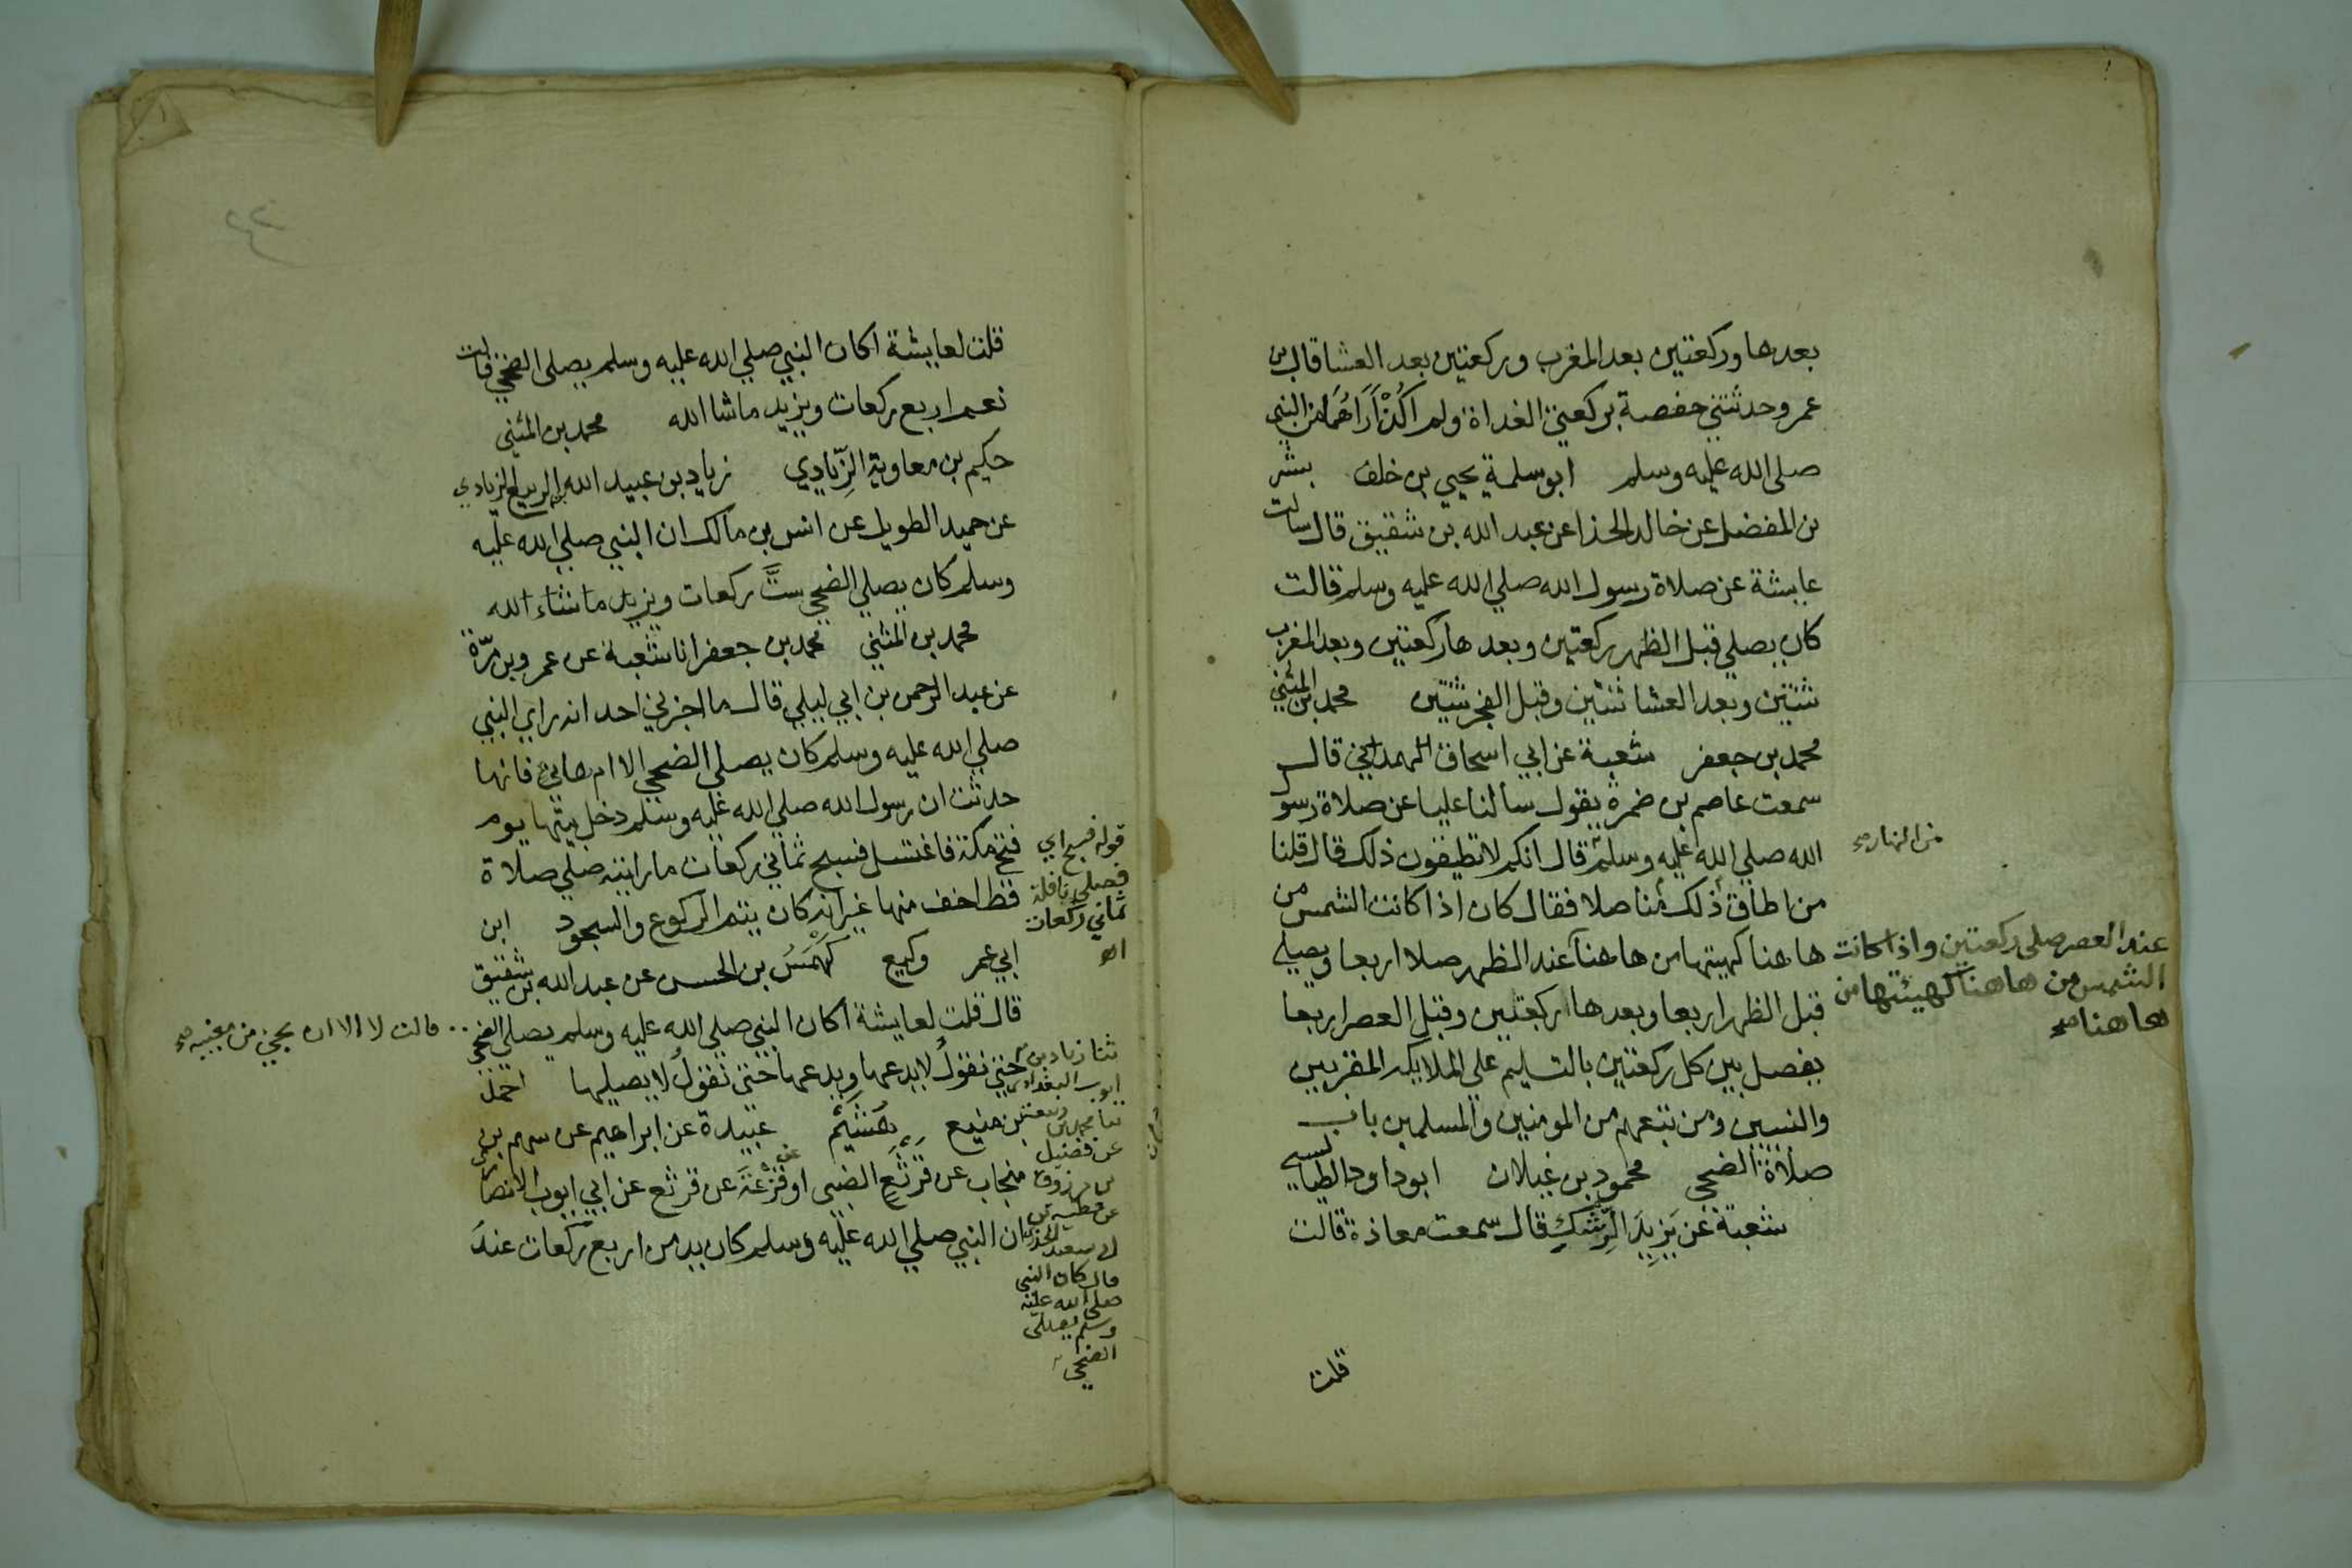 بعدها وركعتين بعد المغرب وركعتين بعد العشا قال بن
عمر وحدثتني حفصة بركعتي الغداة ولم اكن اراهما من النبي
صلى الله عليه وسلم ابو سلمة يحيي بن خلف بشر
بن المفضل عن خالد الحذا عن عبد الله بن شقيق قال سالت
عايشة عن صلاة رسول الله صلي الله عليه وسلم قالت
كان يصلي قبل الظهر ركعتين وبعدها ركعتين وبعد المغرب
ثنتين وبعد العشا ثنتين وقبل الفجر ثنتين محمد بن المثني
محمد بن جعفر شعبة عن ابي اسحاق الهمداني قال
سمعت عاصم بن ضمرة يقول سالنا عليا عن صلاة رسو
الله صلي الله عليه وسلم قال انكم لا تطيقون ذلك قال قلنا
من النهار صح
من اطاق ذلك منا صلا فقال كان اذا كانت الشمس من
هاهنا كهيتها من هاهنا عند الظهر صلا اربعا ويصلي
عند العصر صلى ركعتين واذا كانت
الشمس من هاهنا كهيئتها من
هاهنا صح
قبل الظهر اربعا وبعدها ركعتين وقبل العصر اربعا
يفصل بين كل ركعتين بالتسليم علي الملايكة المقربين
والنبيين ومن تبعهم من المومنين والمسلمين باب
صلاة الضحي محمود بن غيلان ابو داود الطيالسي
شعبة عن يزيد الرشك قال سمعت معاذة قالت
قلت
قلت لعايشة اكان النبي صلي الله عليه وسلم يصلي الضحي قالت
نعم اربع ركعات ويزيد ما شا الله محمد بن المثني
حكيم بن معاوية الزيادي زياد بن عبيد الله بن الربيع الزيادي
عن حميد الطويل عن انس بن مالك ان النبي صلي الله عليه
وسلم كان يصلي الضحي ست ركعات ويزيد ما شاء الله
محمد بن المثني محمد بن جعفر انا شعبة عن عمرو بن مرة
عن عبد الرحمن بن ابي ليلي قال ما اخبرني احد انه راي النبي
صلي الله عليه وسلم كان يصلي الضحي الا ام هاني فانها
حدثت ان رسول الله صلي الله عليه وسلم دخل بيتها يوم
فتح مكة فاغتسل فسبح ثماني ركعات ما رايته صلي صلاة
قط اخف منها غير انه كان يتم الركوع والسجود ابن
قوله فسبح اي
فصلي نافلة
ثماني ركعات
اه
ابي عمر وكيع كهمس بن الحسن عن عبد الله بن شقيق
قال قلت لعايشة اكان النبي صلي الله عليه وسلم يصلي الضحي
قالت لا الا ان يجي من مغيبه صح
حتي نقول لا يدعها ويدعها حتي نقول لا يصليها احمد
بن منيع هشيم عبيدة عن ابراهيم عن سهم بن
منجاب عن قرثع الضبي او قزعة عن قرثع عن ابي ايوب الانصاري
ان النبي صلي الله عليه وسلم كان يدمن اربع ركعات عند
ثنا زياد بن
ايوب البغدادي
ثنا محمد بن ربيعة
عن فضيل
بن مرزوق
عن عطية عن
ابي سعيد الخدري
قال كان النبي
صلي الله عليه
وسلم يصلي
الضحي